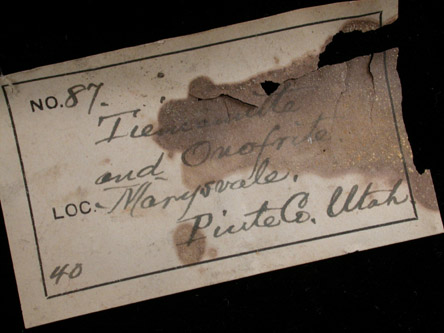 NO. 87.
Tiemannite
and Onofrite.
LOC. Marysvale.
Piute Co. Utah.
40